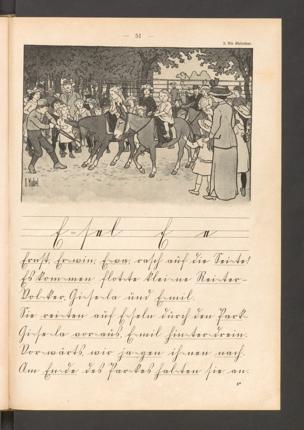 — 51 —
E-sel E e
Ernst, Er-win, E-va, rasch auf die Sei-te!
Es kom-men flot-te klei-ne Rei-ter-
Vol-ker, Gi-se-la und E-mil.
Sie rei-ten auf E-seln durch den Park.
Gi-se-la vor-aus, E-mil hin-ter-drein.
Vor-wärts, wir ja-gen ih-nen nach.
Am En-de des Par-kes hal-ten sie an.